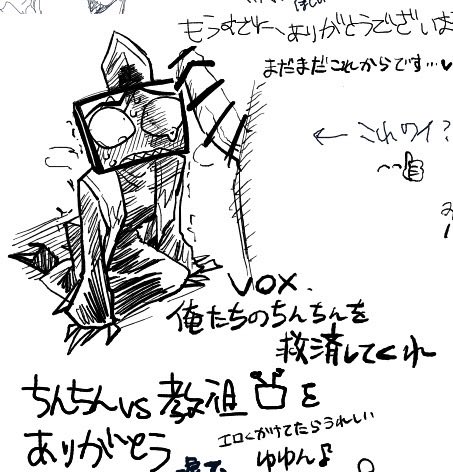 もうすでに、ありがとうございま
まだまだこれからです…♥
← これのイ?
VOX.
俺たちのちんちんを
救済してくれ
ちんちんvs教祖 を
ありがとう
エロくかけてたらうれしい
ゆゆん♪